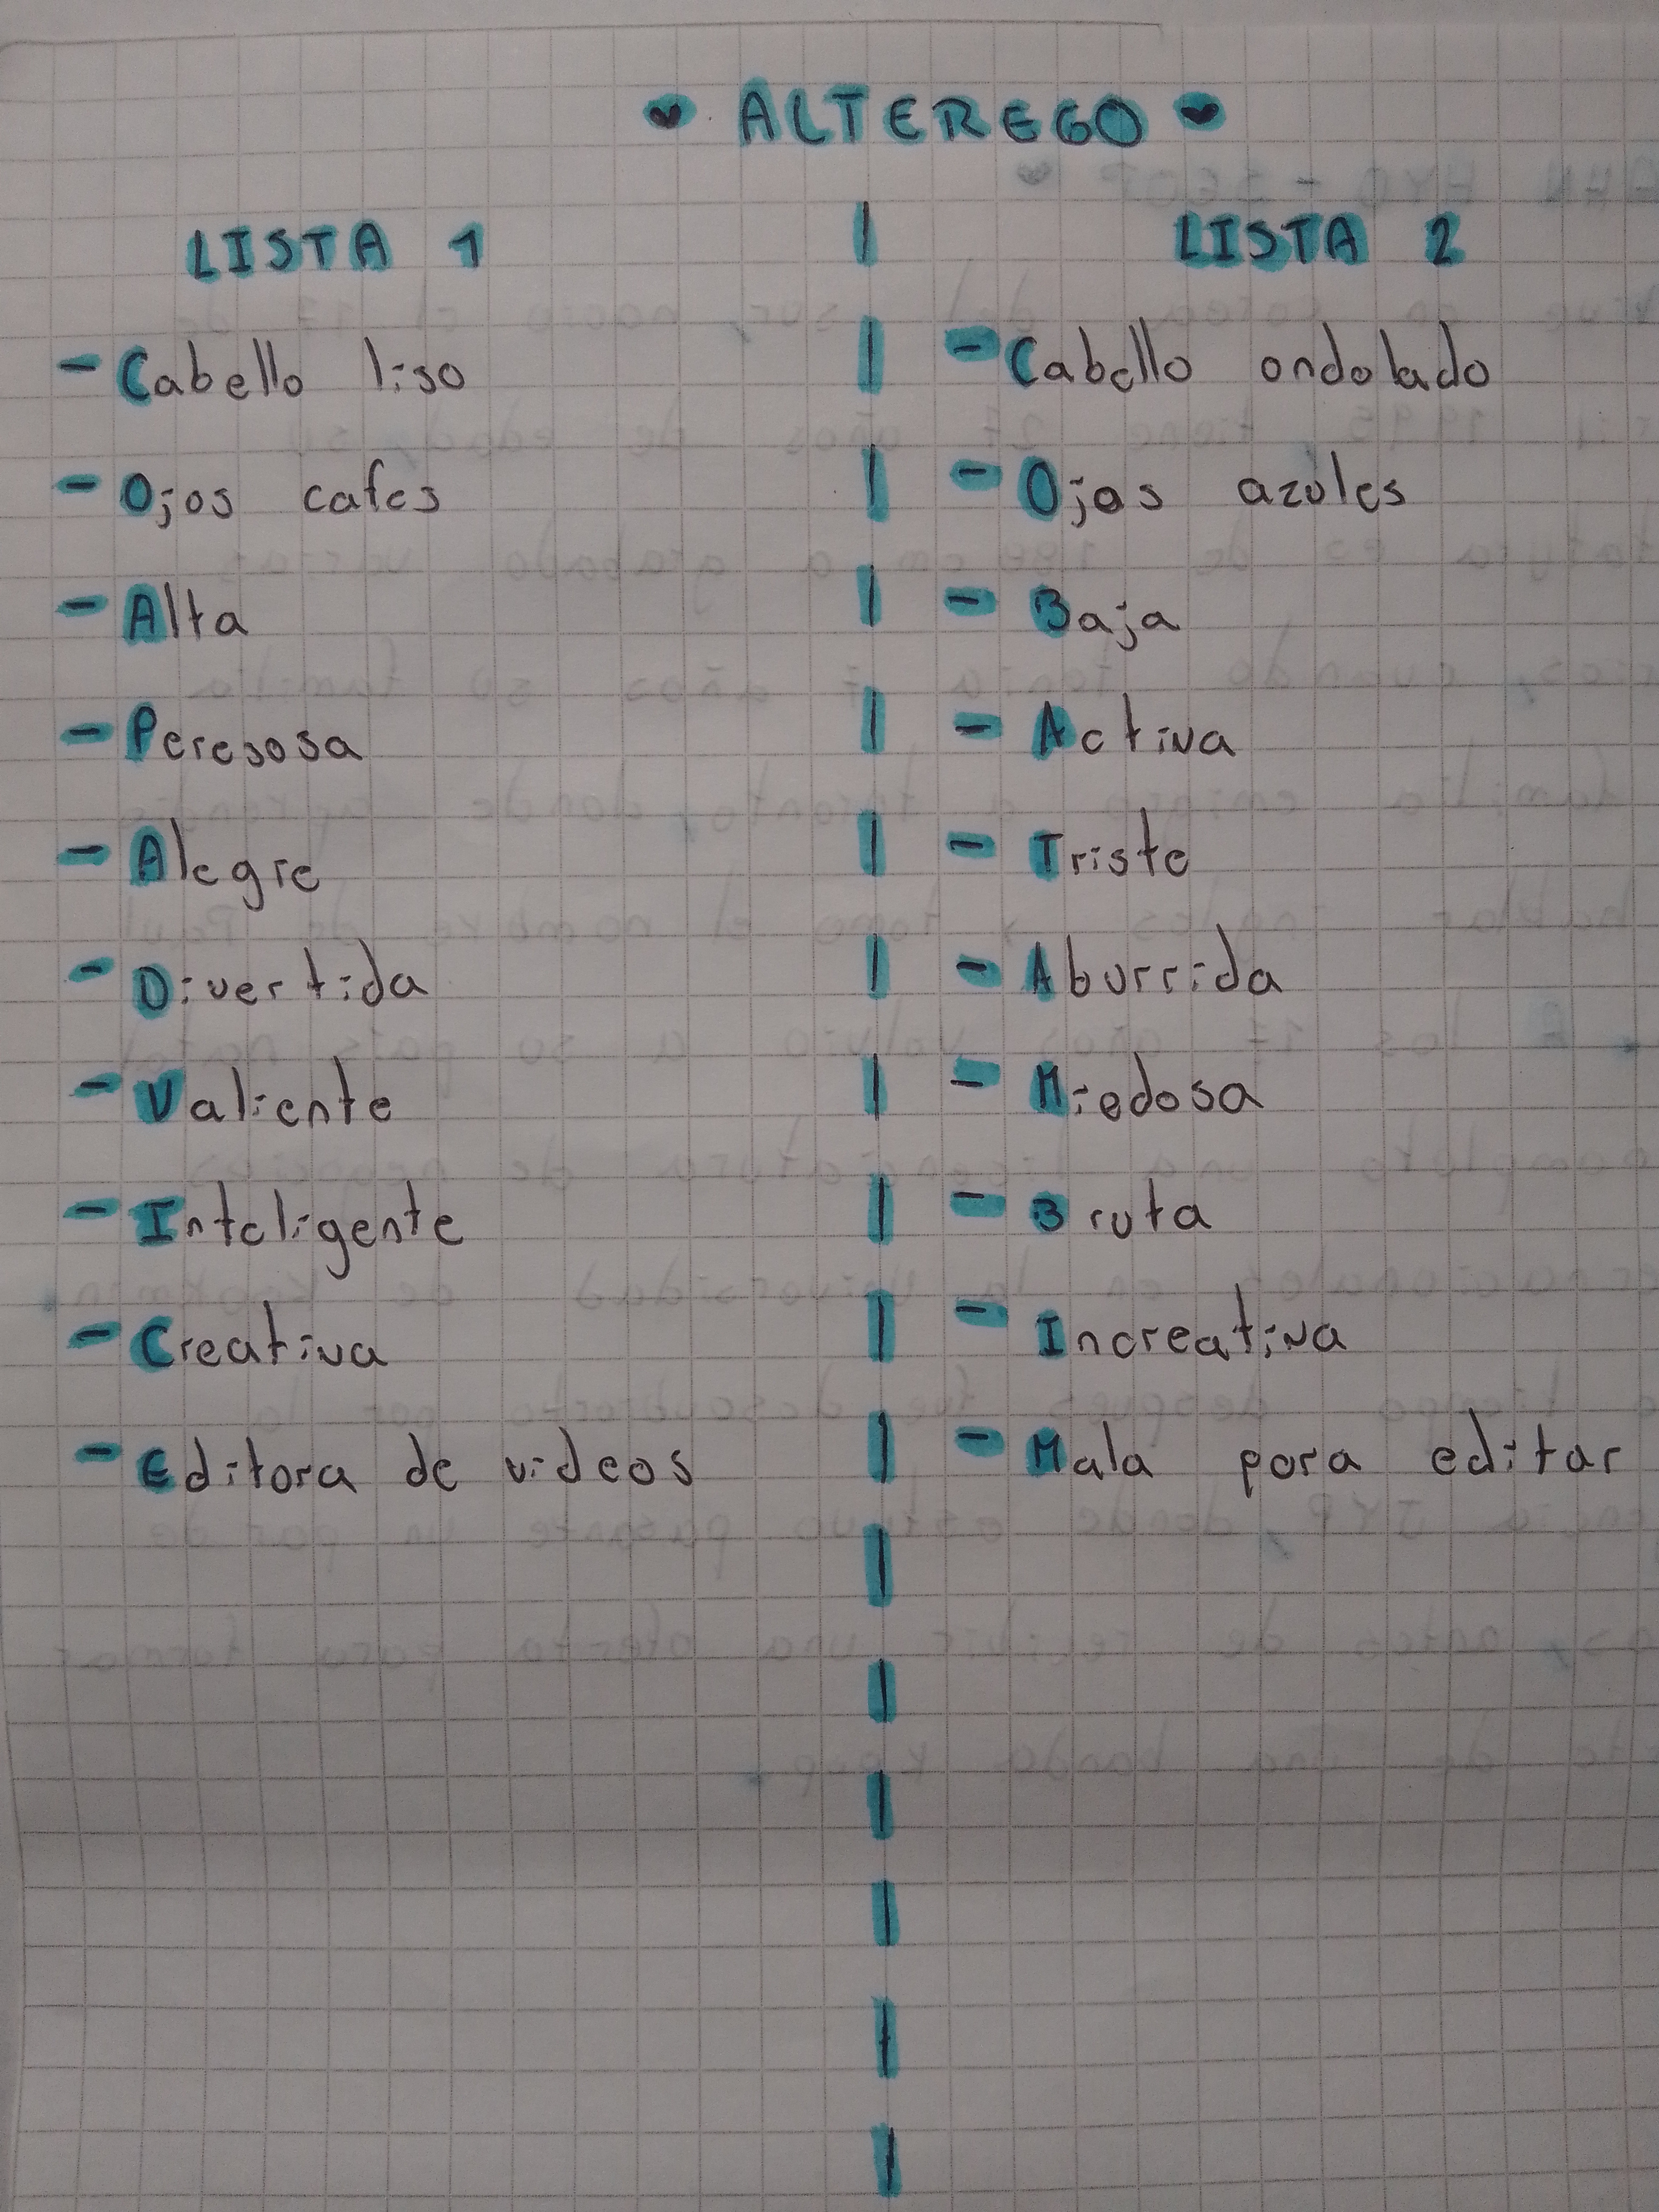 ALTEREGO
LISTA 1
- Cabello liso
- Ojos cafes
- Alta
- Peresosa
- Alegre
- Divertida
- Valiente
- Inteligente
- Creativa
- Editora de videos
LISTA 2
- Cabello ondolado
- Ojos azules
- Baja
- Activa
- Triste
- Aburrida
- Miedosa
- Bruta
- Increativa
- Mala pora editar